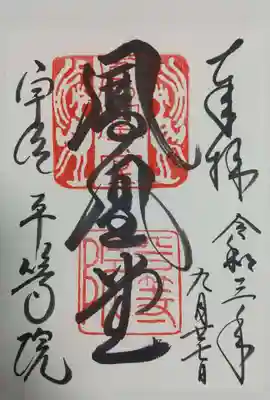 奉拝 令和三年
九月廿七日
鳳凰堂
宇治 平等院